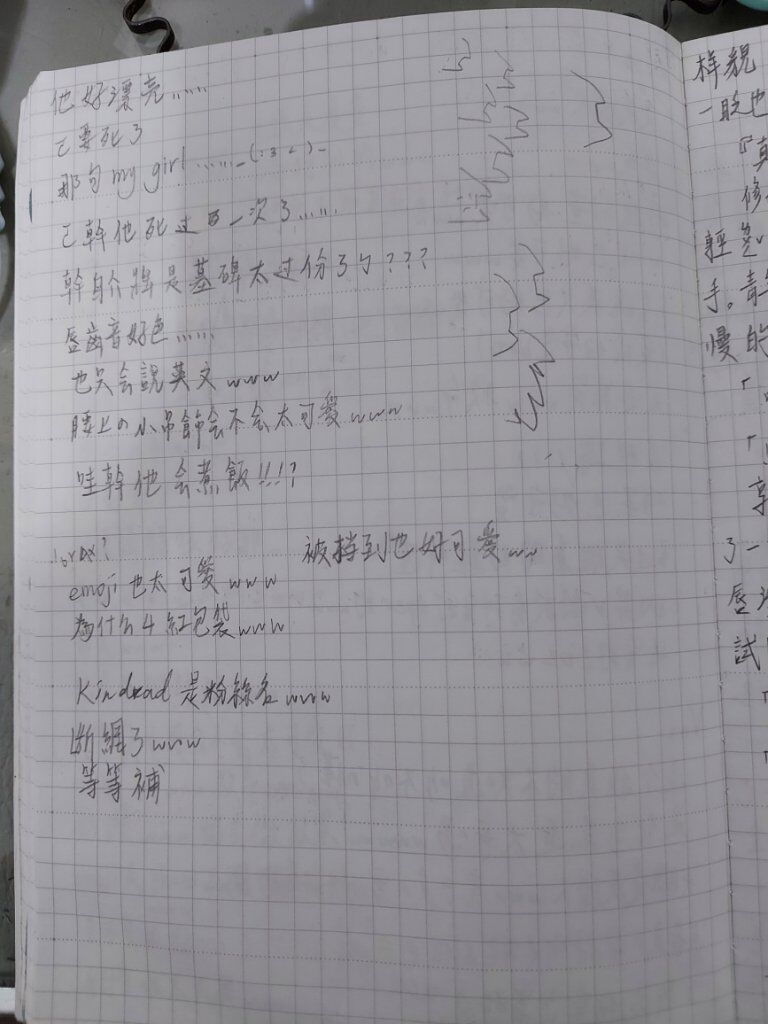 他好漂亮......
已要死了
那句my girl......_(:3<)_
已幹他死过一次了......
幹自介牌是墓碑太过份了ㄅ???
唇齒音好色......
他只会說英文www
腰上の小吊飾会不会太可愛www
哇幹他会煮飯!!!?
被擋到也好可愛ww
emoji也太可愛www
為什么4紅包袋www
Kindread是粉絲名www
断網了www
等等補
样貌
一眨也
『真
修
輕
手。青
慢的
「
「
享
了一
唇
試
「
「